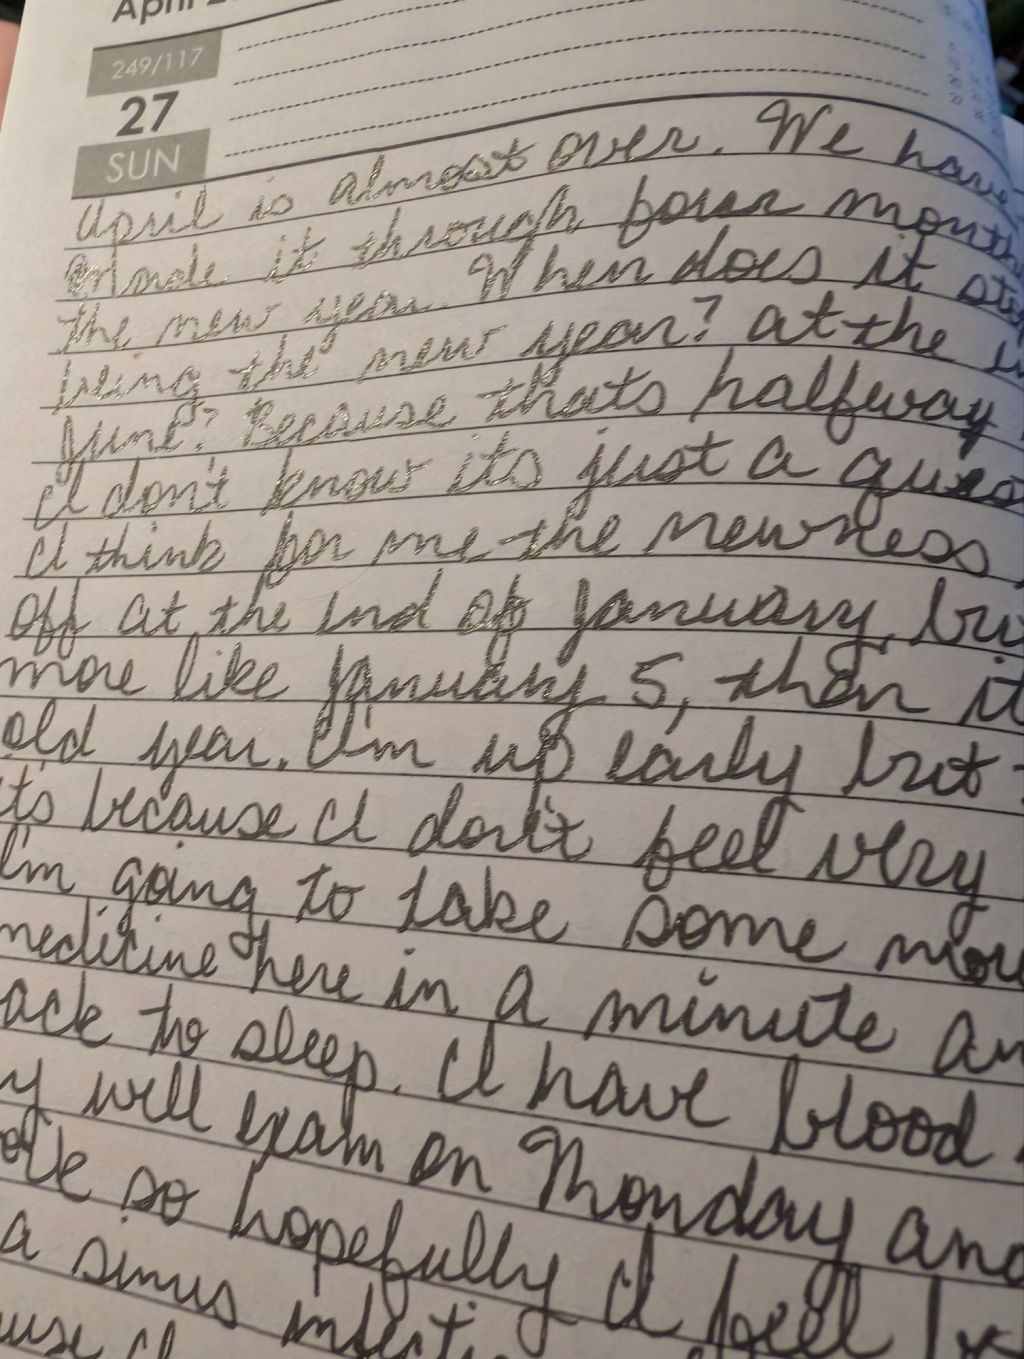 April
249/117
27
SUN
April is almost over. We have
Made it through four month
the new year. When does it
being the new year? At the
June? Because thats halfway
I don't know its just a
I think for me the newness
off at the end of January,
more like January 5, then it
old year. I'm up early but
its because I don't feel very
I'm going to take some more
medicine here in a minute
to sleep. I have blood
well exam on Monday and
so hopefully I feel
a sinus
I